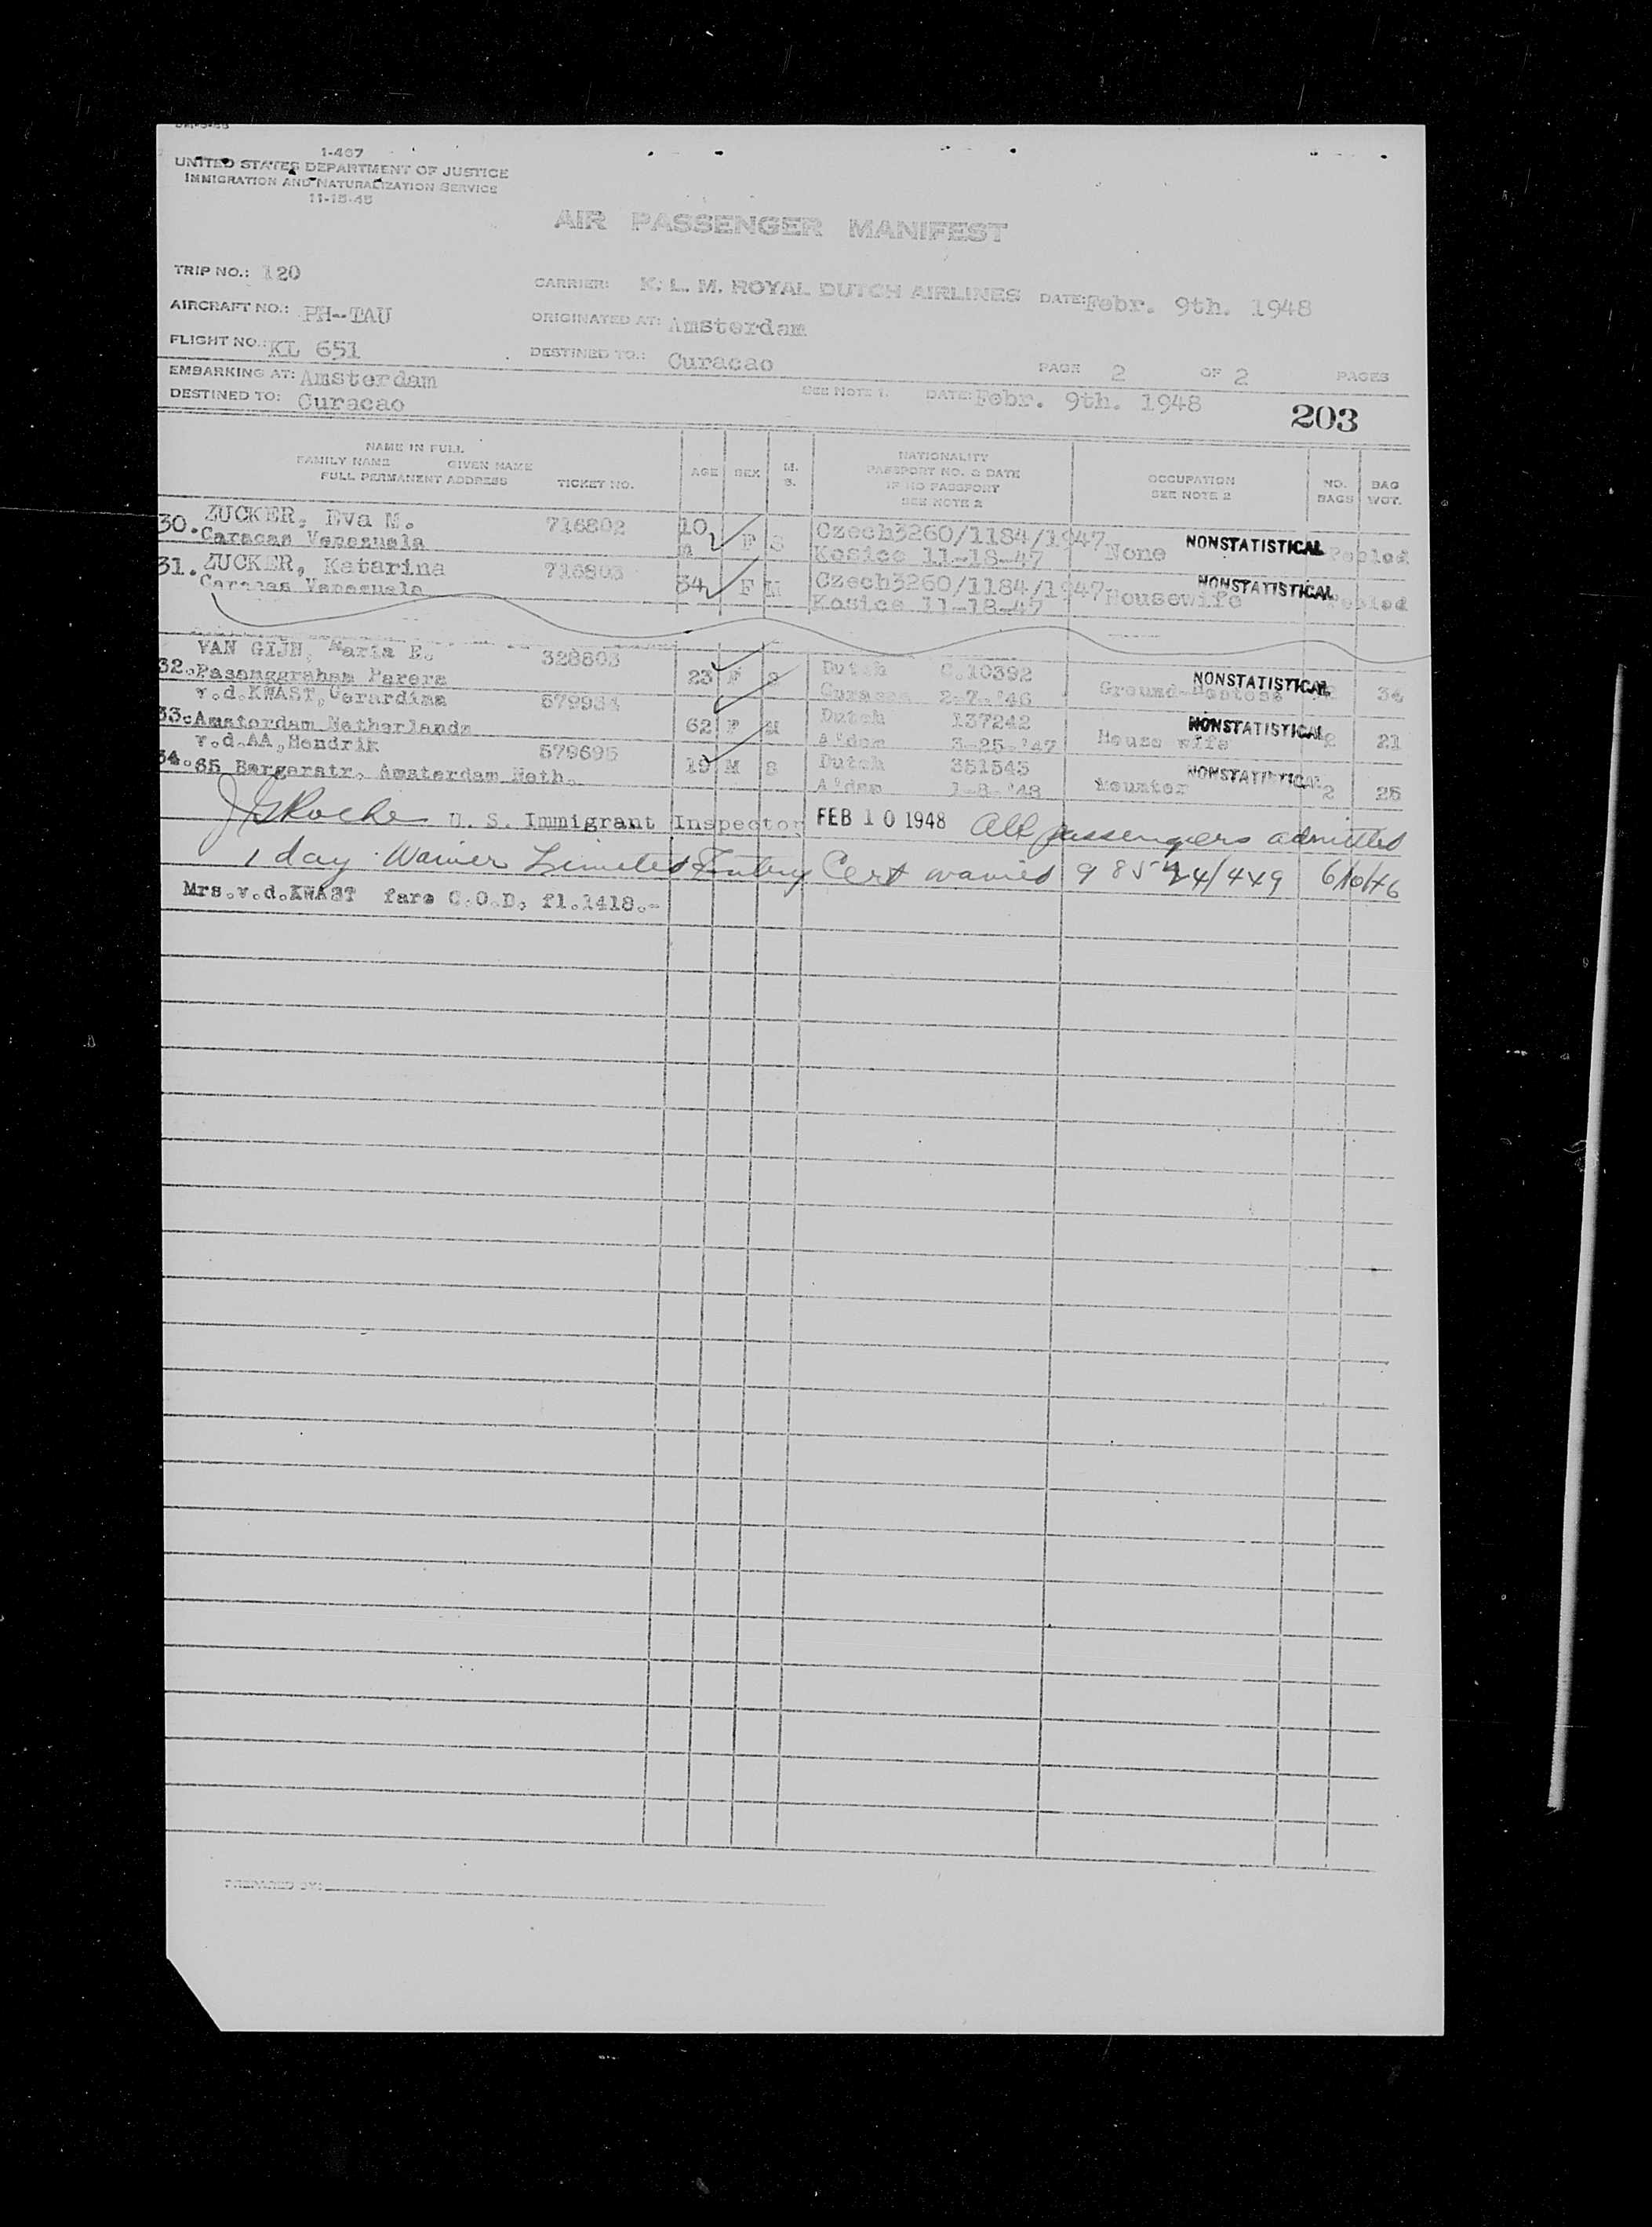 1-467
UNITED STATES DEPARTMENT OF JUSTICE
IMMIGRATION AND NATURALIZATION SERVICE
11-15-45
AIR PASSENGER MANIFEST
TRIP NO.: 120
CARRIER: K. L. M. ROYAL DUTCH AIRLINES DATE: Febr. 9th. 1948
AIRCRAFT NO.: PH-TAU
ORIGINATED AT: Amsterdam
FLIGHT NO.: KL 651
DESTINED TO.: Curacao PAGE 2 OF 2 PAGES
EMBARKING AT: Amsterdam
SEE NOTE 1. DATE: Febr. 9th. 1948
DESTINED TO: Curacao
203
NAME IN FULL
FAMILY NAME GIVEN NAME
FULL PERMANENT ADDRESS TICKET NO.
AGE SEX M. S.
NATIONALITY
PASSPORT NO. & DATE
IF NO PASSPORT
SEE NOTE 2
OCCUPATION
SEE NOTE 2
NO. BAGS
BAG WGT.
30. ZUCKER, Eva M. 716802 10 F S Czech3260/1184/1947 None NONSTATISTICAL Pooled
Caracas Venezuela Kosice 11-18-47
31. ZUCKER, Katarina 716803 34 F M Czech3260/1184/1947 Housewife NONSTATISTICAL Pooled
Caracas Venezuela Kosice 11-18-47
VAN GIJN, Maria E. 328803 Dutch C.10392
32. Pasanggraham Parera 23 F S Curacao 2-7-'46 Ground-Hostess NONSTATISTICAL 34
v.d.KWAST, Gerardina Dutch 137242
33. Amsterdam Netherlands 62 F M A'dam 3-25-'47 House wife NONSTATISTICAL 2 21
v.d.AA, Hendrik 579695 Dutch 351543
34. 65 Bergerstr. Amsterdam Neth. 19 M S A'dam 1-8-'48 Mounter NONSTATISTICAL 2 25
J Roche U. S. Immigrant Inspector FEB 10 1948 All passengers admitted
1 day Waiver Limited Entry Cert waived 6/10/46
Mrs.v.d.KWAST fare C.O.D. fl.1418.-
PREPARED BY: